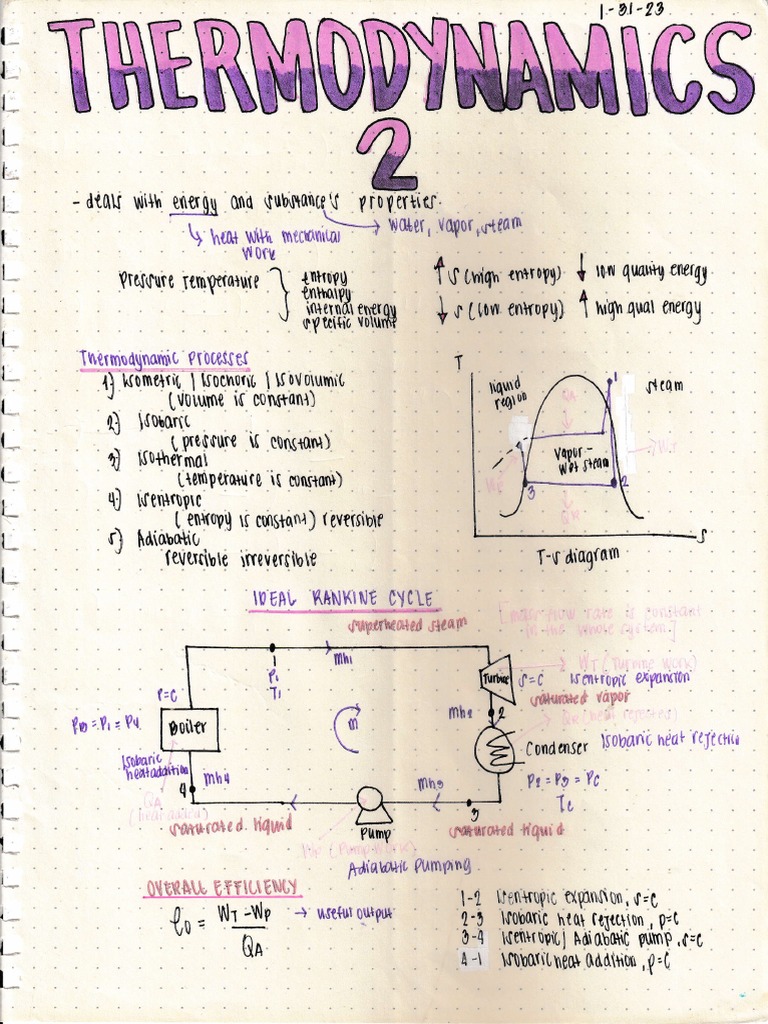 1-31-23
THERMODYNAMICS
2
- deals with energy and substance's properties.
↳ heat with mechanical work
→ water, vapor, steam
Pressure temperature } entropy
enthalpy
internal energy
specific volume
↑ s (high entropy) ↓ low quality energy
↓ s (low entropy) ↑ high qual energy
Thermodynamic Processes
1) Isometric | Isochoric | Isovolumic
(volume is constant)
2) Isobaric
(pressure is constant)
3) Isothermal
(temperature is constant)
4) Isentropic
(entropy is constant) reversible
5) Adiabatic
reversible irreversible
T
liquid
region
QA
1
steam
Vapor-
Wet steam
WT
3
2
QR
S
T-s diagram
IDEAL RANKINE CYCLE
[mass flow rate is constant
in the whole system]
superheated steam
mh1
P1
T1
Turbine
S=C
WT (Turbine Work)
Isentropic expansion
saturated vapor
P=C
PB = P1 = P4
Boiler
Isobaric
heat addition
QA
(heat added)
4
mh4
m
mh2
2
QR (heat rejected)
Condenser
Isobaric heat rejectio
P2 = P3 = PC
Tc
mh3
3
saturated liquid
Pump
saturated liquid
Wp (Pump Work)
Adiabatic Pumping
OVERALL EFFICIENCY
eo = WT - Wp → useful output
QA
1-2 Isentropic expansion, s=c
2-3 Isobaric heat rejection, p=c
3-4 Isentropic/ Adiabatic pump, s=c
4-1 Isobaric heat addition, p=c